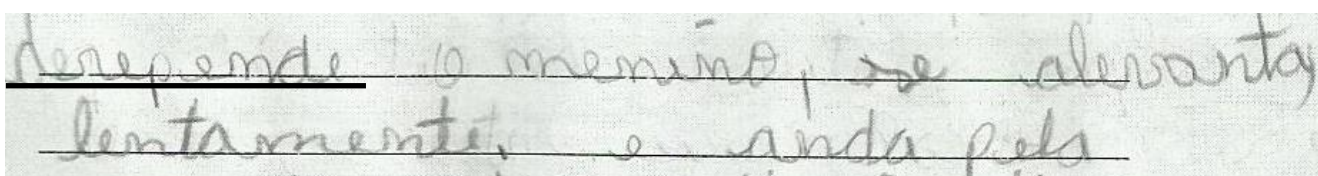 derepende o menino, se alevanta,
lentamente. e anda pela